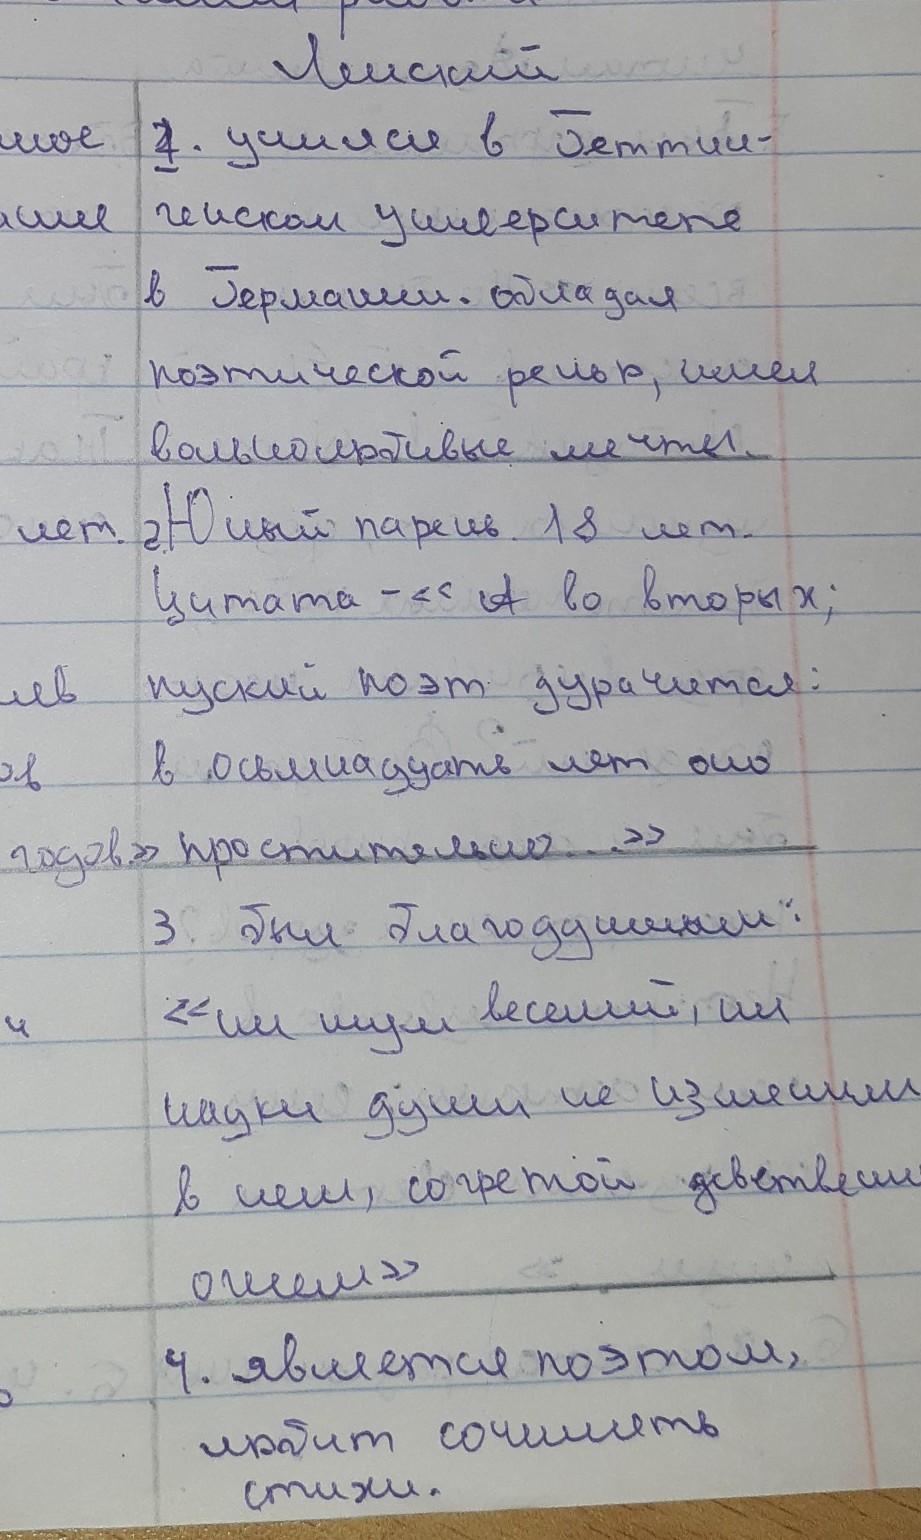 Ленский
мое 1. учился в Геттин-
генском университете
в Германии. обладал
поэтической речью, имел
вольнолюбивые мечты.
лет. 2. Юный парень. 18 лет.
Цитата - «А во вторых;
лев пуский поэт дурачится:
ов в осьмнадцать лет оно
годов.» простительно...»
3. был благодушным:
ч «ни шум веселий, ни
науки души не изменили
в нем, согретой девственн
огнем»
4. является поэтом,
любит сочинять
стихи.